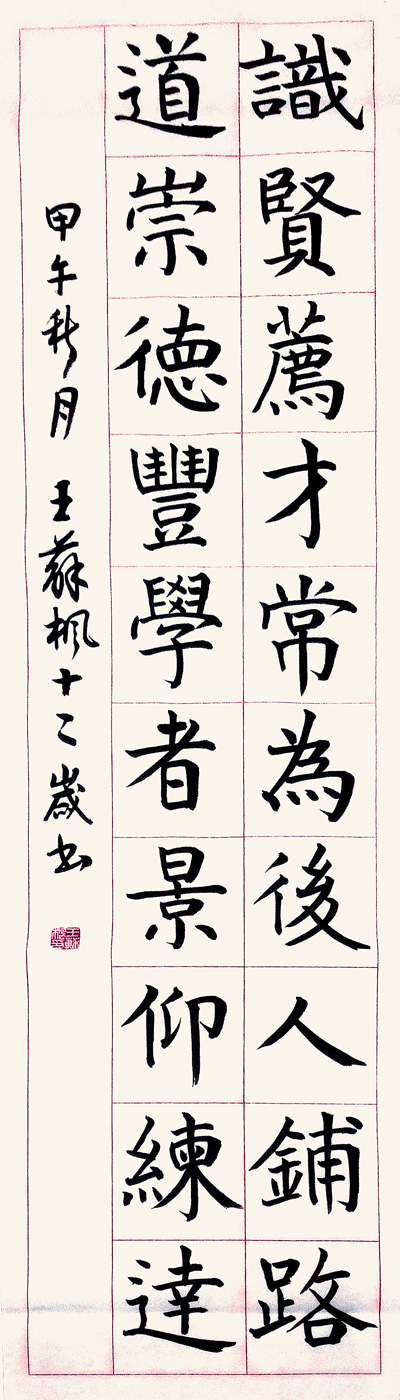 識賢薦才常為後人鋪路
道崇德豐學者景仰練達
甲午秋月 王蘇楓十二歲書